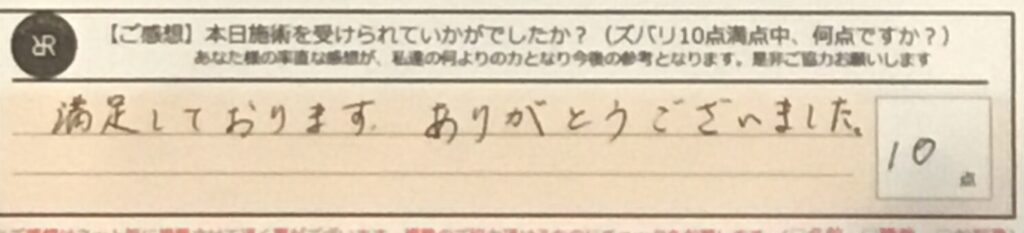 【ご感想】本日施術を受けられていかがでしたか？（ズバリ10点満点中、何点ですか？）
あなた様の率直な感想が、私達の何よりの力となり今後の参考となります。是非ご協力お願いします
満足しております。ありがとうございました。
10点